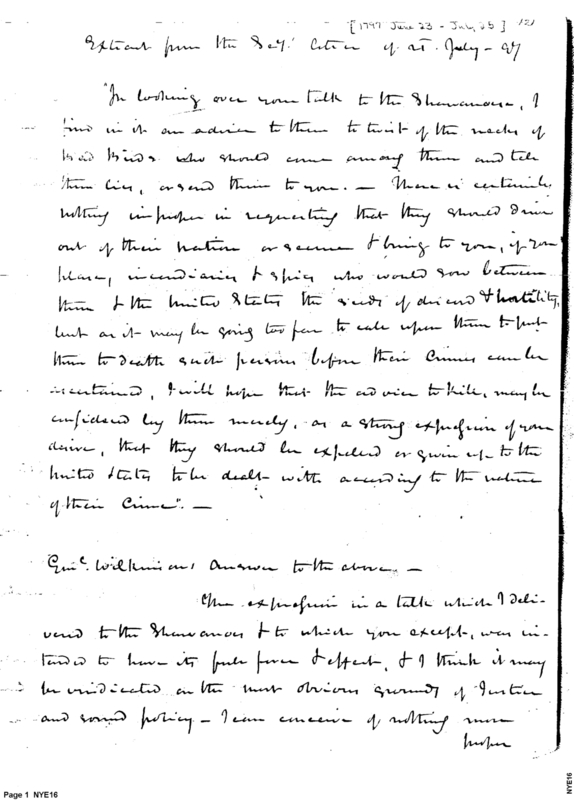 [1797 June 23 - July 25] 121
Extract from the Secy.' letter of 21. July - 97
"In looking over your talk to the Shawanoese, I
find in it an advice to them to twist of the necks of
Bad Birds who should come among them and tell
them lies, or send them to you. — There is certainly
nothing improper in requesting that they should drive
out of their nation or secure & bring to you, if you
please, incendiaries & spies who would sow between
them & the United States the seeds of discord & hostility,
but as it may be going too far to call upon them to put
them to death such persons before their Crimes can be
ascertained, I will hope that the advice to kill, may be
considered by them merely, as a strong expression of your
desire, that they should be expeled or given up to the
United States to be dealt with according to the nature
of their Crime". —
Genl. Wilkinsons Answer to the above. —
The expression in a talk which I deli-
vered to the Shawanoes & to which you except, was in-
tended to have its full force & effect, & I think it may
be vindicated on the most obvious grounds of Justice
and sound policy - I can conceive of nothing more
proper
Page 1 NYE16
NYE16